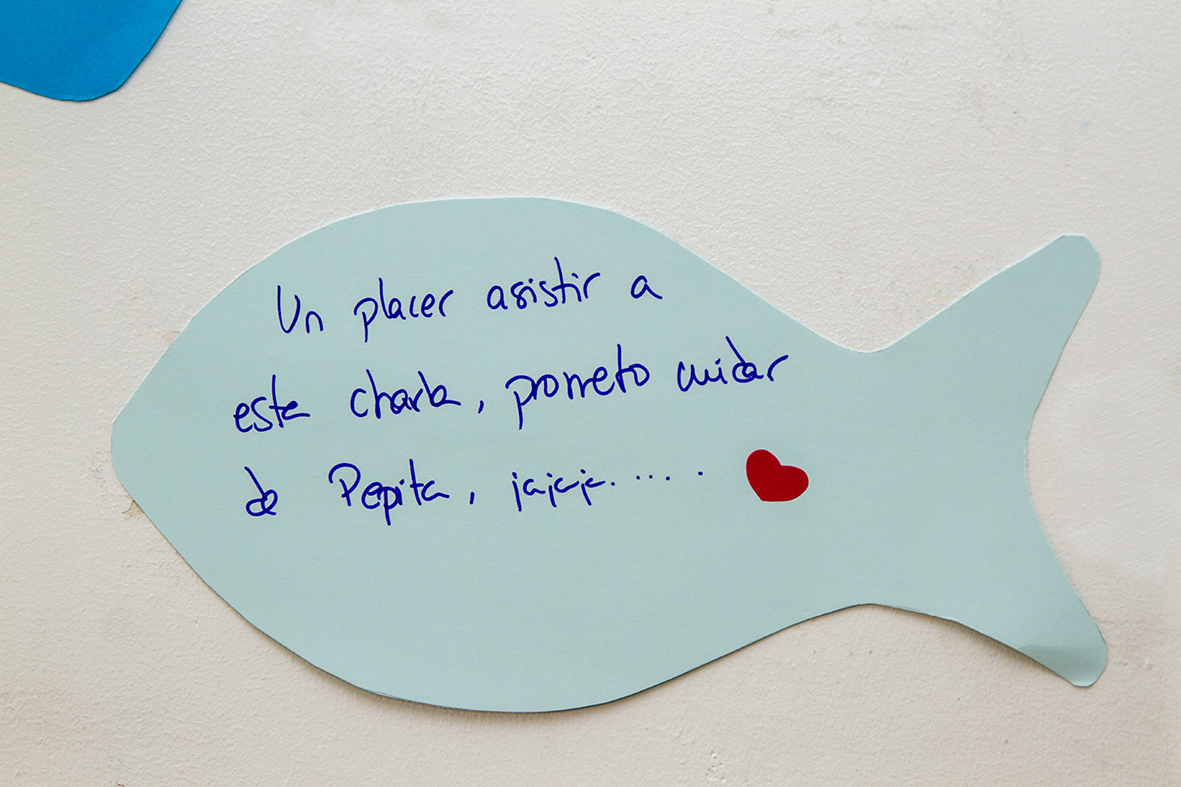 Un placer asistir a
esta charla, prometo cuidar
de Pepita, jajaja.....